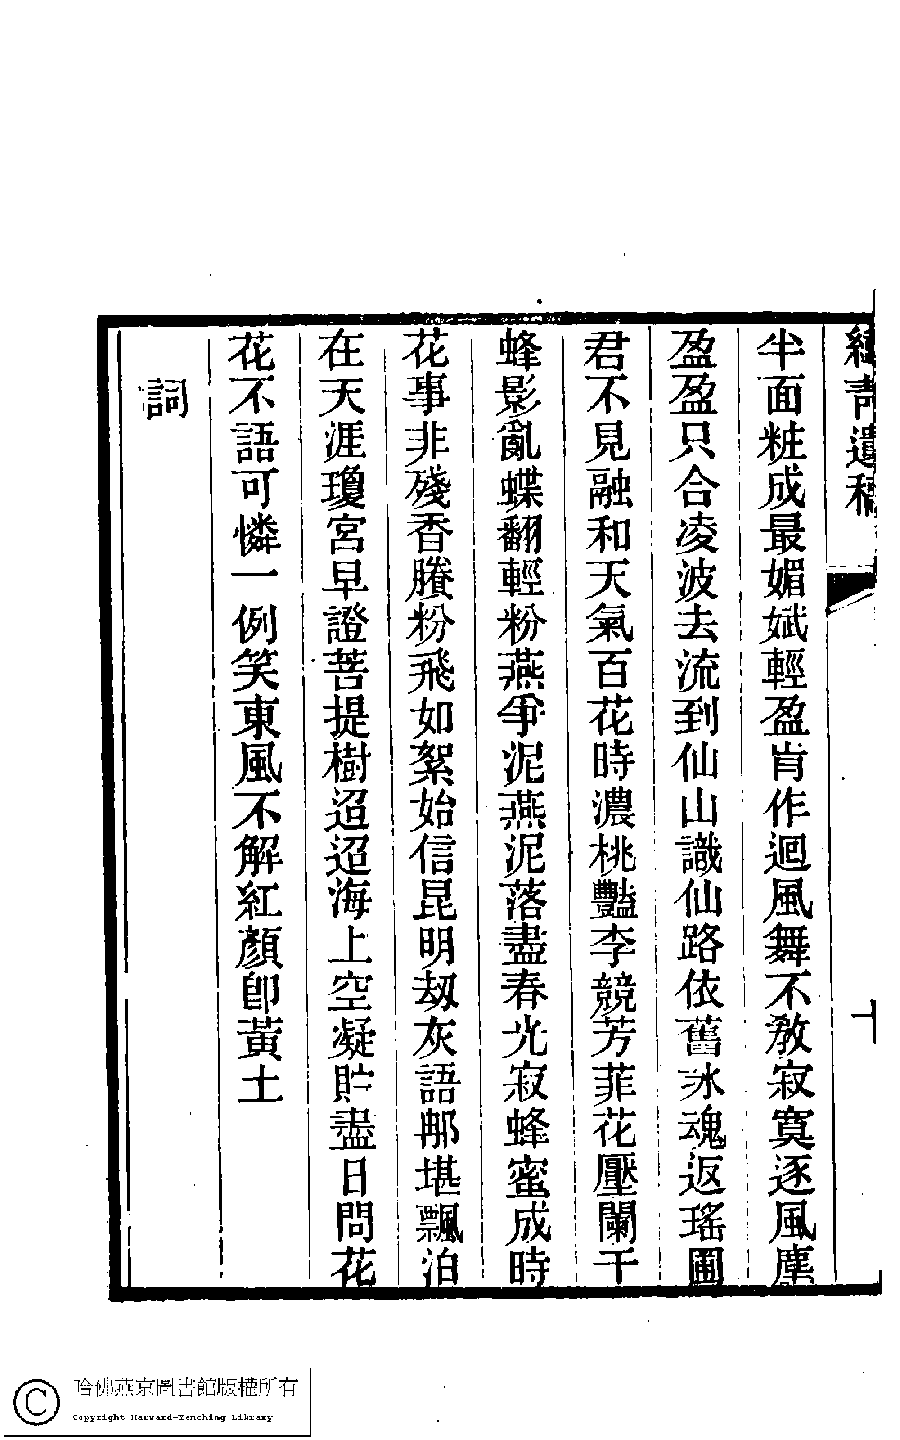 遺稿
十
半面粧成最媚娬輕盈肯作迴風舞不敎寂寞逐風塵
盈盈只合凌波去流到仙山識仙路依舊冰魂返瑤圃
君不見融和天氣百花時濃桃豔李競芳菲花壓闌干
蜂影亂蝶翻輕粉燕爭泥燕泥落盡春光寂蜂蜜成時
花事非殘香賸粉飛如絮始信昆明刼灰語那堪飄泊
在天涯瓊宮早證菩提樹迢迢海上空凝貯盡日問花
花不語可憐一例笑東風不解紅顏卽黃土
詞
哈佛燕京圖書館版權所有
Copyright Harvard-Yenching Library